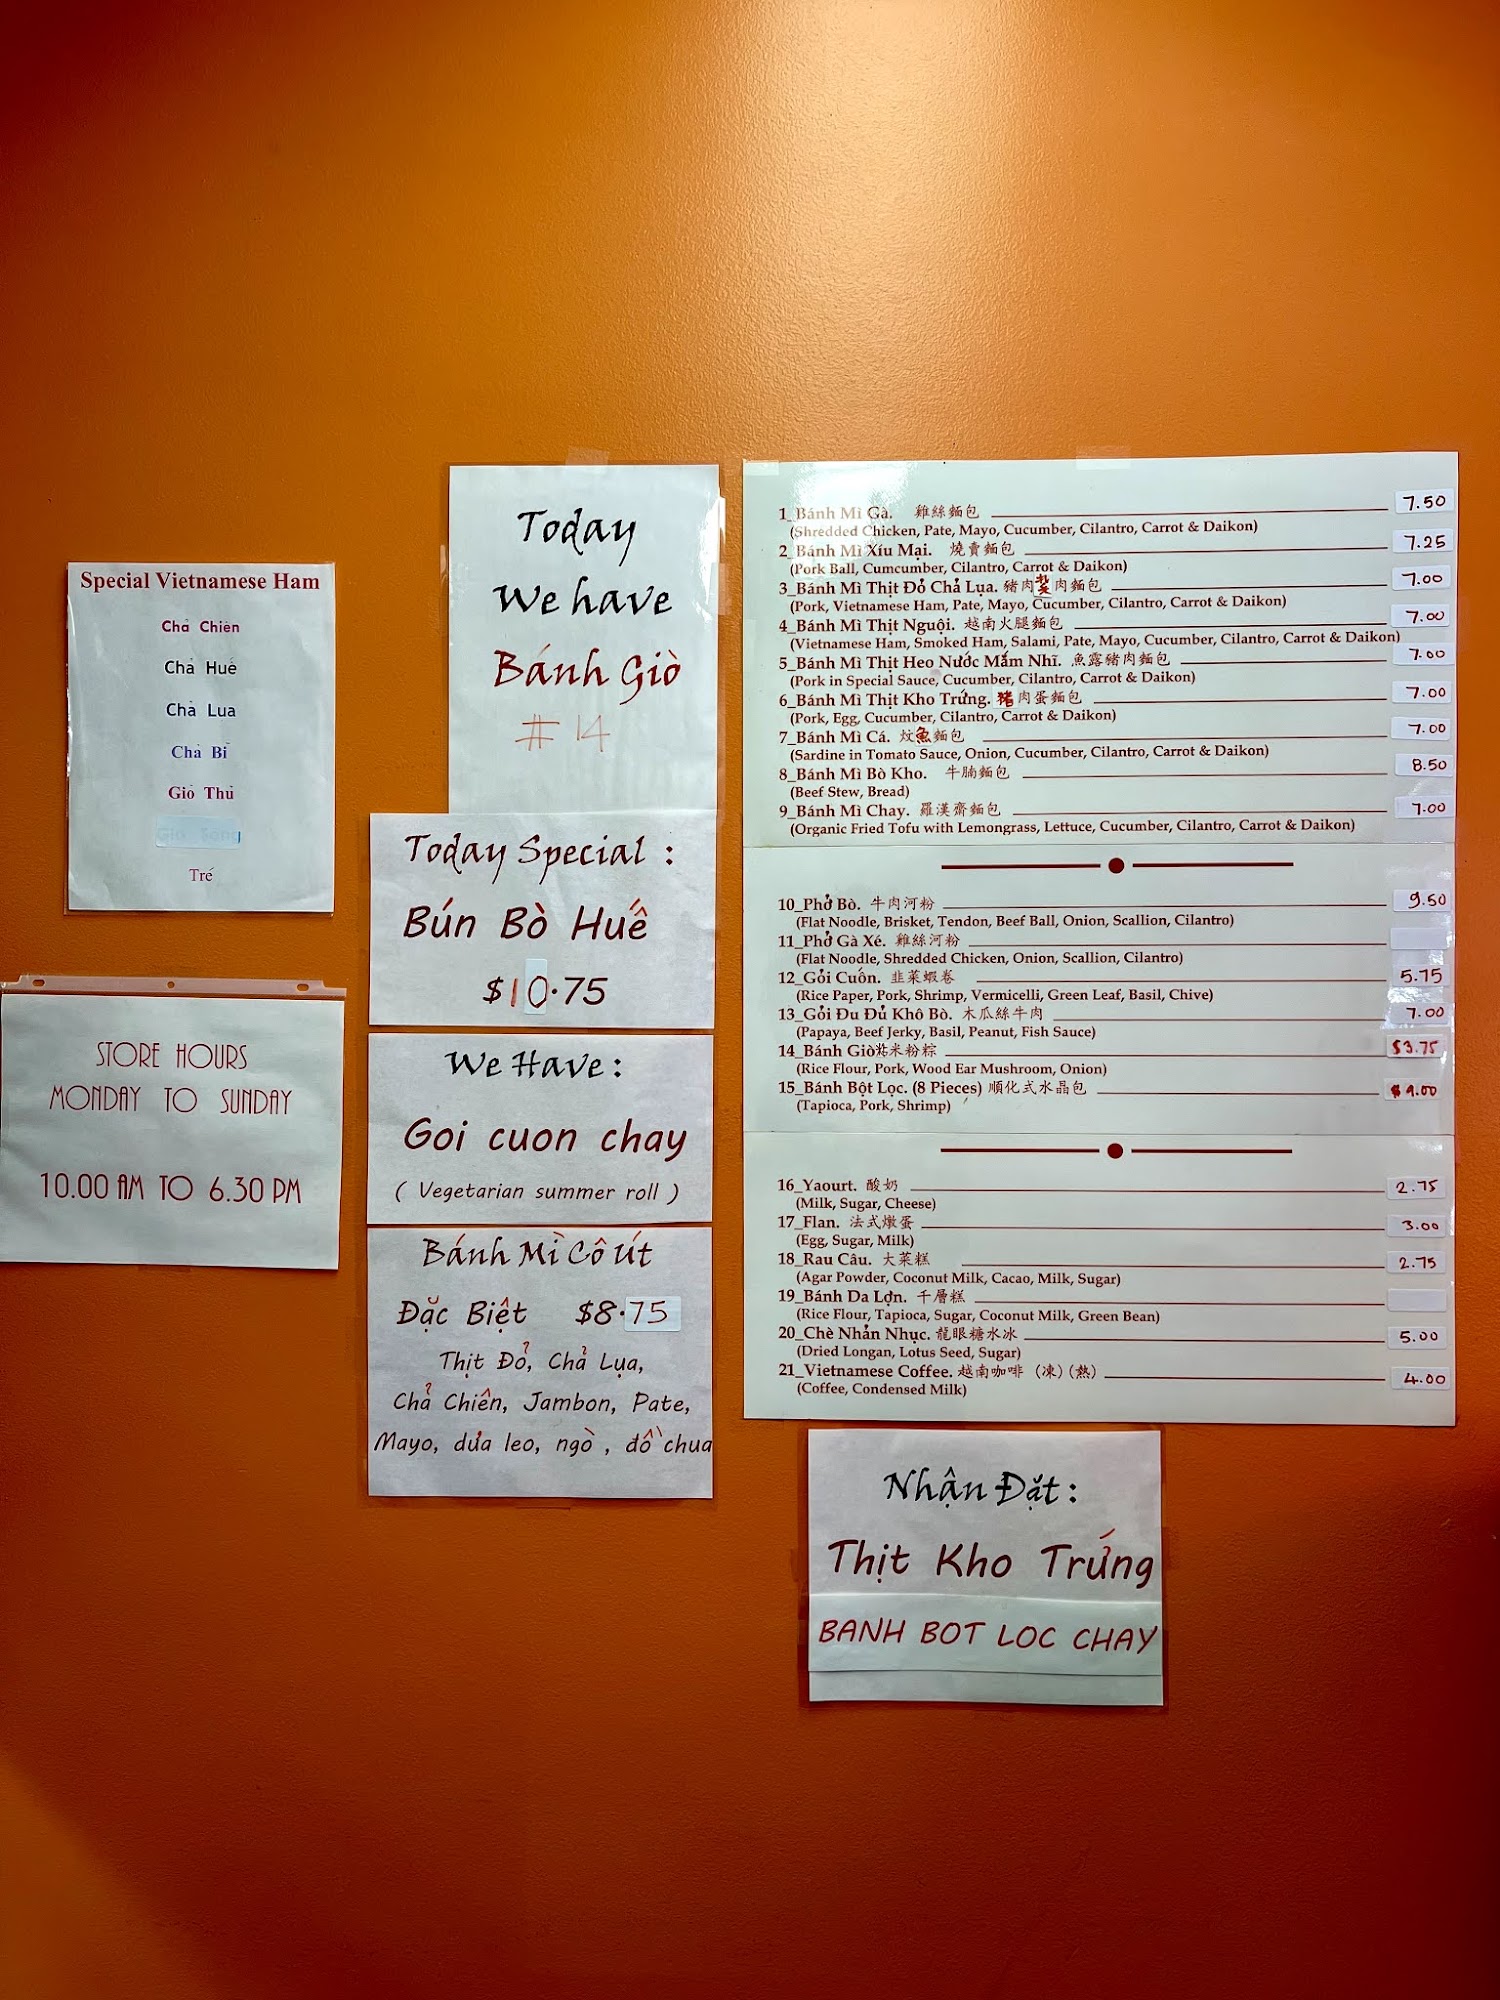 Special Vietnamese Ham
Chả Chiên
Chả Huế
Chả Lụa
Chả Bì
Giò Thủ
Tré
STORE HOURS
MONDAY TO SUNDAY
10.00 AM TO 6.30 PM
Today
We have
Bánh Giò
# 14
Today Special :
Bún Bò Huế
$10.75
We Have :
Goi cuon chay
( Vegetarian summer roll )
Bánh Mì Cô Út
Đặc Biệt $8.75
Thịt Đỏ, Chả Lụa,
Chả Chiên, Jambon, Pate,
Mayo, dưa leo, ngò , đồ chua
1_Bánh Mì Gà. 雞絲麵包 7.50
(Shredded Chicken, Pate, Mayo, Cucumber, Cilantro, Carrot & Daikon)
2_Bánh Mì Xíu Mại. 燒賣麵包 7.25
(Pork Ball, Cumcumber, Cilantro, Carrot & Daikon)
3_Bánh Mì Thịt Đỏ Chả Lụa. 豬肉 肉麵包 7.00
(Pork, Vietnamese Ham, Pate, Mayo, Cucumber, Cilantro, Carrot & Daikon)
4_Bánh Mì Thịt Nguội. 越南火腿麵包 7.00
(Vietnamese Ham, Smoked Ham, Salami, Pate, Mayo, Cucumber, Cilantro, Carrot & Daikon)
5_Bánh Mì Thịt Heo Nước Mắm Nhĩ. 魚露豬肉麵包 7.00
(Pork in Special Sauce, Cucumber, Cilantro, Carrot & Daikon)
6_Bánh Mì Thịt Kho Trứng. 豬肉蛋麵包 7.00
(Pork, Egg, Cucumber, Cilantro, Carrot & Daikon)
7_Bánh Mì Cá. 炆魚麵包 7.00
(Sardine in Tomato Sauce, Onion, Cucumber, Cilantro, Carrot & Daikon)
8_Bánh Mì Bò Kho. 牛腩麵包 8.50
(Beef Stew, Bread)
9_Bánh Mì Chay. 羅漢齋麵包 7.00
(Organic Fried Tofu with Lemongrass, Lettuce, Cucumber, Cilantro, Carrot & Daikon)
10_Phở Bò. 牛肉河粉 9.50
(Flat Noodle, Brisket, Tendon, Beef Ball, Onion, Scallion, Cilantro)
11_Phở Gà Xé. 雞絲河粉
(Flat Noodle, Shredded Chicken, Onion, Scallion, Cilantro)
12_Gỏi Cuốn. 韭菜蝦卷 5.75
(Rice Paper, Pork, Shrimp, Vermicelli, Green Leaf, Basil, Chive)
13_Gỏi Đu Đủ Khô Bò. 木瓜絲牛肉 7.00
(Papaya, Beef Jerky, Basil, Peanut, Fish Sauce)
14_Bánh Giò 粘米粉粽 $3.75
(Rice Flour, Pork, Wood Ear Mushroom, Onion)
15_Bánh Bột Lọc. (8 Pieces) 順化式水晶包 $9.00
(Tapioca, Pork, Shrimp)
16_Yaourt. 酸奶 2.75
(Milk, Sugar, Cheese)
17_Flan. 法式燉蛋 3.00
(Egg, Sugar, Milk)
18_Rau Câu. 大菜糕 2.75
(Agar Powder, Coconut Milk, Cacao, Milk, Sugar)
19_Bánh Da Lợn. 千層糕
(Rice Flour, Tapioca, Sugar, Coconut Milk, Green Bean)
20_Chè Nhãn Nhục. 龍眼糖水冰 5.00
(Dried Longan, Lotus Seed, Sugar)
21_Vietnamese Coffee. 越南咖啡 (凍) (熱) 4.00
(Coffee, Condensed Milk)
Nhận Đặt :
Thịt Kho Trứng
BANH BOT LOC CHAY